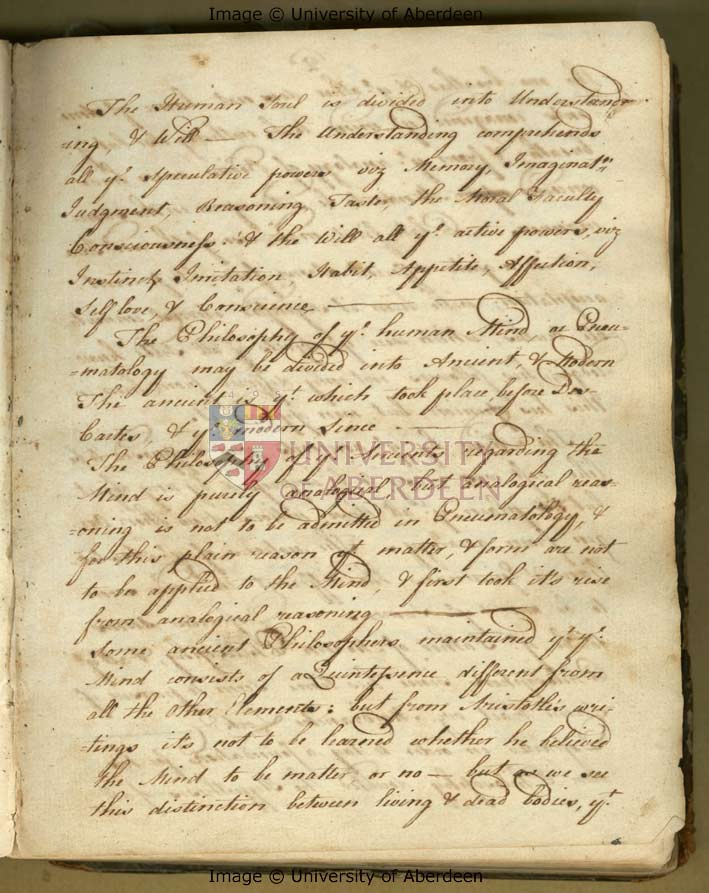 Image © University of Aberdeen
The Human Soul is divided into Understand-
-ing, & Will — The Understanding comprehends
all yᵉ Speculative powers viz Memory, Imaginatⁿ,
Judgment, Reasoning Taste, the Moral Faculty
Consciousness & the Will all yᵉ active powers, viz
Instinct, Imitation, Habit, Appetite, Affection,
Self love, & Conscience
The Philosophy of yᵉ human Mind, or Pneu-
-matology may be divided into Ancient, & Modern
The ancient is yᵗ which took place before Des-
Cartes, & yᵉ modern since
The Philosophy of yᵉ Ancients regarding the
Mind is purely analogical, but analogical reas-
-oning is not to be admitted in Pneumatology, &
for this plain reason yᵗ matter, & form are not
to be applied to the Mind, & first took it's rise
from analogical reasoning
Some ancient Philosophers maintained yᵗ yᵉ
Mind consists of a Quintessence different from
all the other Elements: but from Aristotles wri-
-tings it's not to be learned whether he believed
the Mind to be matter or no — but as we see
this distinction between living & dead bodies, yᵗ
1495
UNIVERSITY
OF ABERDEEN
Image © University of Aberdeen